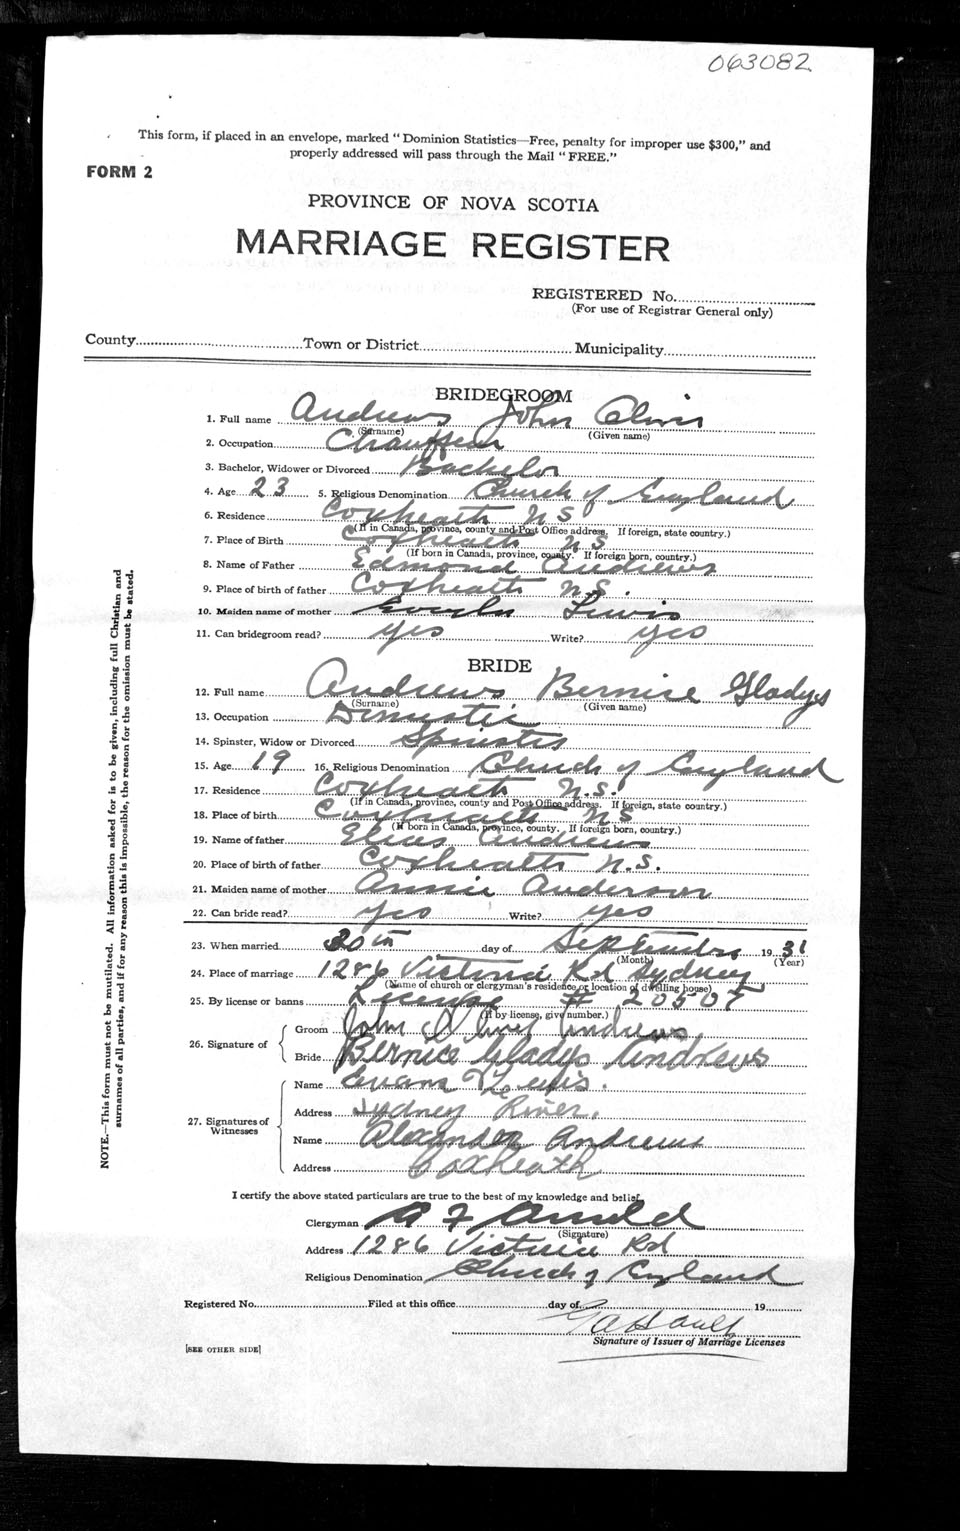 063082
This form, if placed in an envelope, marked "Dominion Statistics—Free, penalty for improper use $300," and
properly addressed will pass through the Mail "FREE."
FORM 2
PROVINCE OF NOVA SCOTIA
MARRIAGE REGISTER
REGISTERED No.
(For use of Registrar General only)
County Town or District Municipality
BRIDEGROOM
1. Full name Andrews John
(Surname) (Given name)
2. Occupation Chauffeur
3. Bachelor, Widower or Divorced Bachelor
4. Age 23 5. Religious Denomination Church of England
6. Residence Coxheath NS
(If in Canada, province, county and Post Office address. If foreign, state country.)
7. Place of Birth Coxheath NS
(If born in Canada, province, county. If foreign born, country.)
8. Name of Father Edmond Andrews
9. Place of birth of father Coxheath NS
10. Maiden name of mother Lewis
11. Can bridegroom read? yes Write? yes
BRIDE
12. Full name Andrews Bernice Gladys
(Surname) (Given name)
13. Occupation Domestic
14. Spinster, Widow or Divorced Spinster
15. Age 19 16. Religious Denomination Church of England
17. Residence Coxheath N.S.
(If in Canada, province, county and Post Office address. If foreign, state country.)
18. Place of birth Coxheath NS
(If born in Canada, province, county. If foreign born, country.)
19. Name of father Andrews
20. Place of birth of father Coxheath N.S.
21. Maiden name of mother Annie Anderson
22. Can bride read? yes Write? yes
23. When married day of September 1931
(Month) (Year)
24. Place of marriage 1286 Victoria Rd Sydney
(Name of church or clergyman's residence or location of dwelling house)
25. By license or banns License #
(If by license, give number.)
26. Signature of
Groom John Andrews
Bride Bernice Gladys Andrews
27. Signatures of
Witnesses
Name Lewis.
Address Sydney River.
Name Alexander Andrews
Address Coxheath
I certify the above stated particulars are true to the best of my knowledge and belief.
Clergyman A F Arnold
(Signature)
Address 1286 Victoria Rd
Religious Denomination Church of England
Registered No. Filed at this office day of 19
Signature of Issuer of Marriage Licenses
[SEE OTHER SIDE]
NOTE.—This form must not be mutilated. All information asked for is to be given, including full Christian and
surnames of all parties, and if for any reason this is impossible, the reason for the omission must be stated.